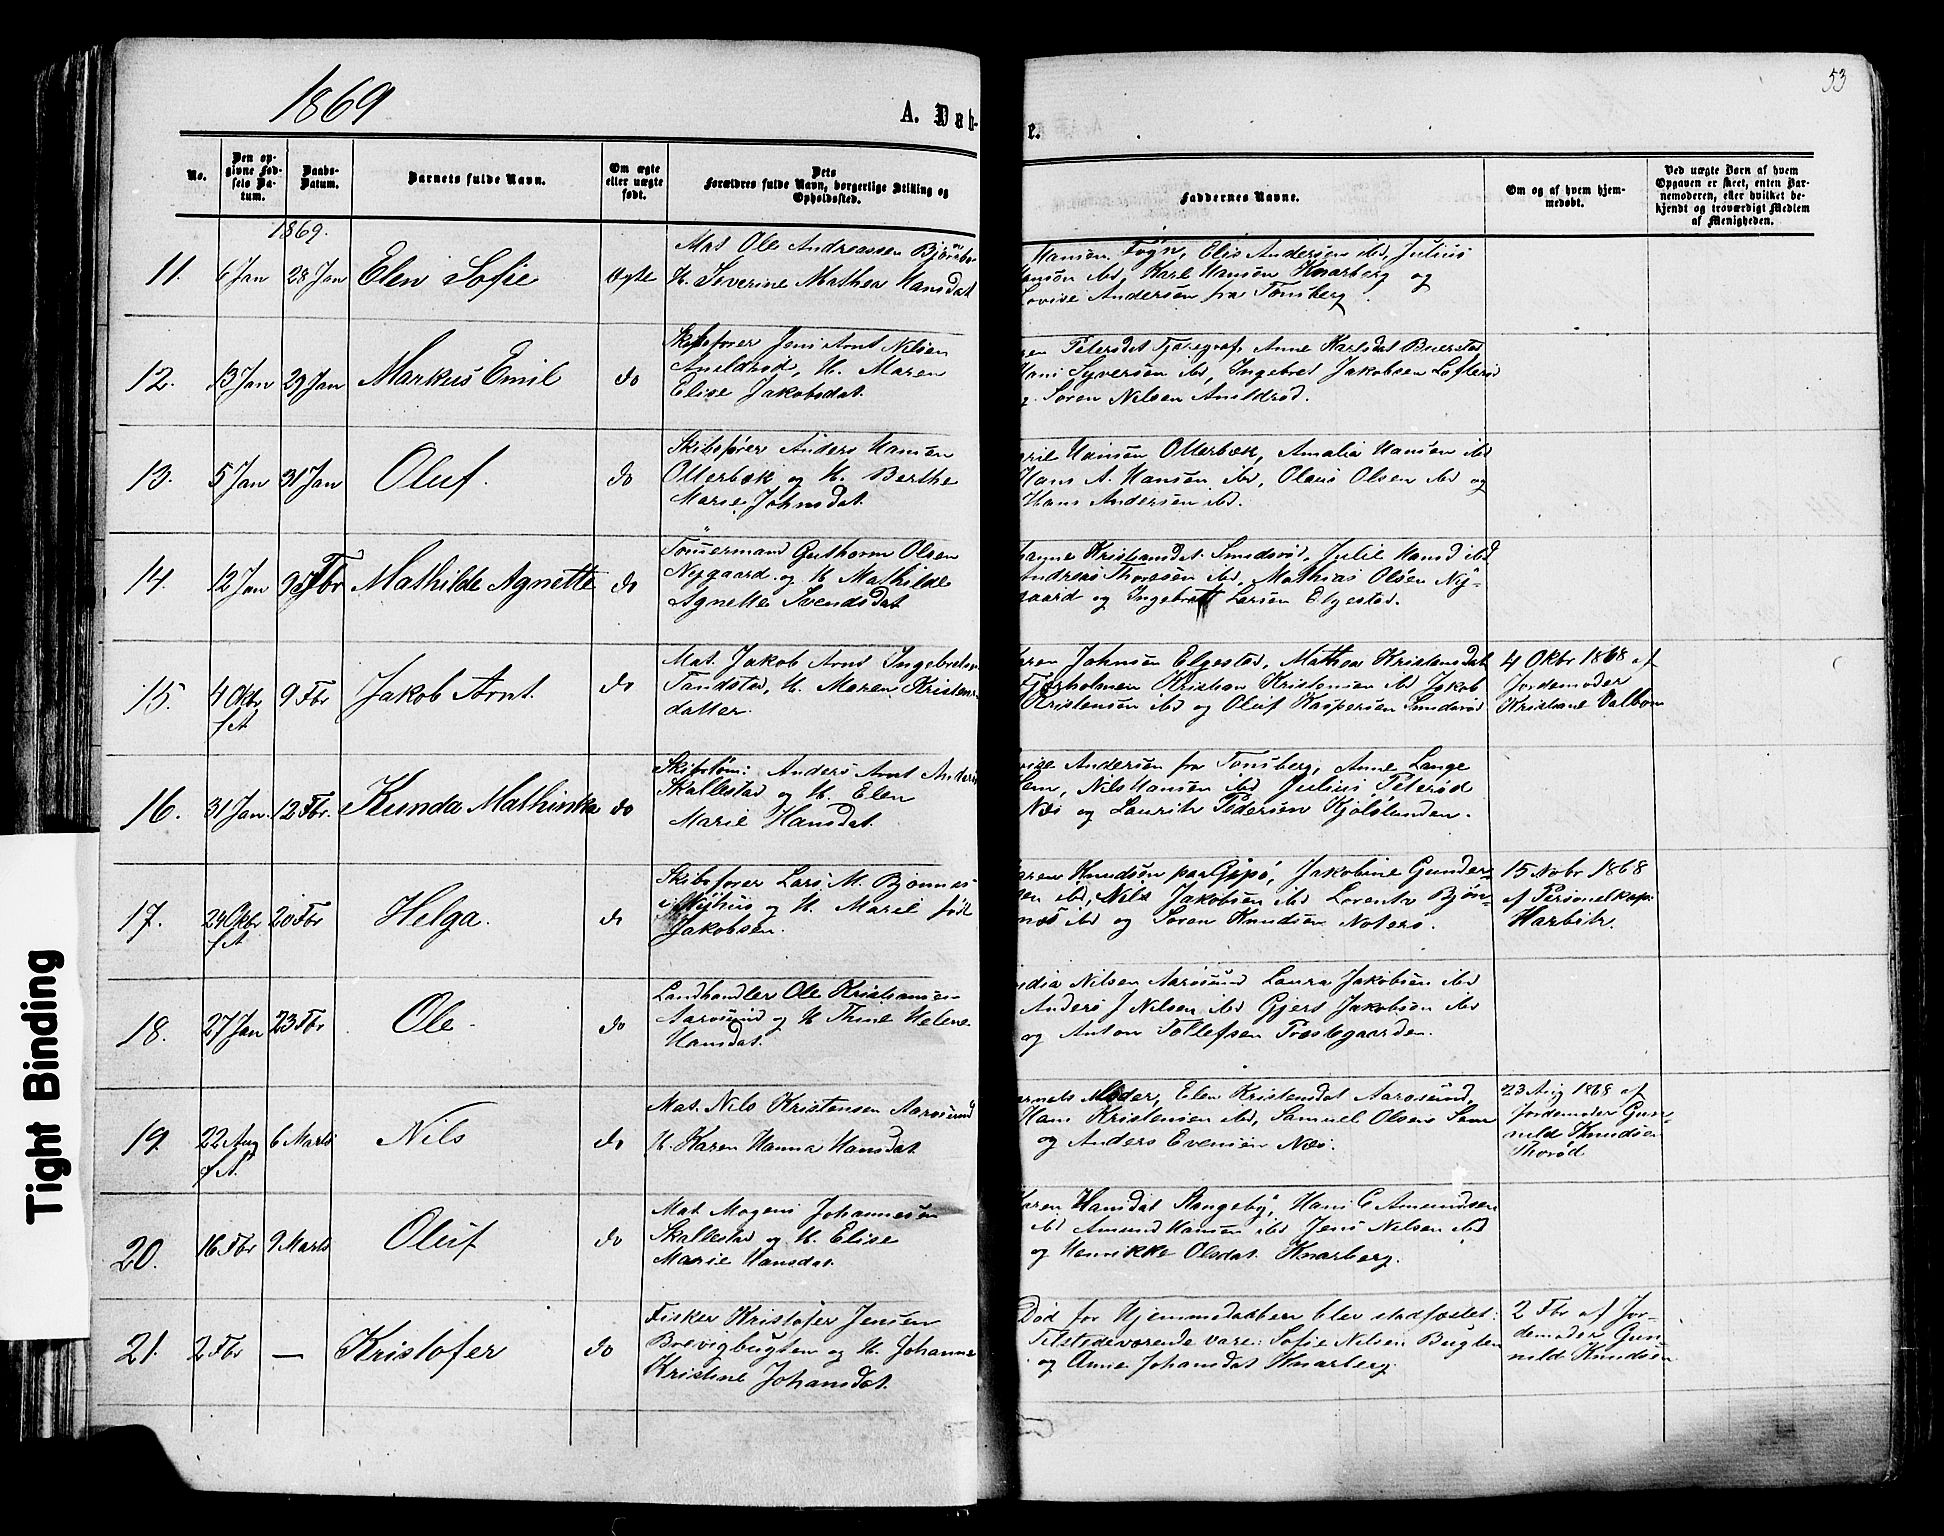 53
1869
A. Dab-
e.
No.
Den op-
givne Fød-
sels Da-
tum.
Daabs-
Datum.
Barnets fulde Navn.
Om ægte
eller uægte
født.
Dets
Forældres fulde Navn, borgerlige Stilling og
Opholdssted.
Faddernes Navne.
Om og af hvem hjem-
medøbt.
Ved uægte Børn af hvem
Opgaven er skeet, enten Bar-
nemoderen, eller hvilket be-
kjendt og troværdigt Medlem
af Menigheden.
1869.
11. 6 Jan 28 Jan Elen Sofie Ægte
Mat Ole Andreassen
H. Severine Mathea Hansdat
Hansen Togn, Elis Andersen ibd, Julius
Hansen ibd, Karl Hansen Knarberg og
Lovise Andersen fra Tønsberg.
12. 13 Jan 29 Jan Markus Emil do
Skibsfører Jens Arnt Nilsen
Anildrød, H. Maren
Elise Jakobsdat.
Petersdat Anne Karlsdat
Hans Syversen ibd, Ingebret Jakobsen
og Søren Nilsen Anildrød.
13. 5 Jan 31 Jan Oluf. do
Skibsfører Anders Hansen
Otterbæk og H. Berthe
Marie Johnsdat.
Hansen Otterbæk, Amalia Hansen ibd
Hans A. Hansen ibd, Olaus Olsen ibd og
Hans Andersen ibd.
14. 12 Jan Fbr Mathilde Agnette do
Tømmermand Guthorm Olsen
Nygaard og H Mathilde
Agnette Svendsdat
Kristiansdat Smidsrød, Julie Hansd ibd
Andreas Thoresen ibd, Mathias Olsen Ny-
gaard og Ingebrett Larsen Elgestad.
15. 4 Oktbr 9 Fbr Jakob Arnt. do
f A
Mat. Jakob Arnt Ingebretsen
Tandstad, H. Maren Kristens-
datter.
Karen Johnsen Elgestad, Mathea Kristensdat
Kristian Kristensen ibd Jakob
Kristensen ibd og Oluf Kaspersen Smidsrød
4 Oktbr 1868 af
Jordemoder
Kristiane Valbom
16. 31 Jan. 12 Fbr. Kunda Mathinka do
Skibstøm: Anders Arnt Anders
Skallestad og H. Elen
Marie Hansdat.
Lovise Andersen fra Tønsberg, Anne Lange
Hem, Nils Hansen ibd Julius Peterød
Næs og Lauritz Pedersen
17. 24 Oktbr 20 Fbr Helga. do
f A
Skibsfører Lars M. Bjønnes
Nyhus og H. Marie født
Jakobsen.
Karen Knudsen paa Gipø, Jakobine Gunder-
sen ibd, Nils Jakobsen ibd Lorentz Bjøn-
nes ibd og Søren Knudsen Noterø.
15 Nobr 1868
af Personelkap:
Harbitz.
18. 27 Jan 23 Fbr Ole. do
Landhandler Ole Kristiansen
Aarøsund og H Thine Helene
Hansdat.
Nilsen Aarøsund Laura Jakobsen ibd
Anders J Nilsen ibd Gjert Jakobsen ibd
og Anton Tollefsen Prestegaarden.
19. 22 Aug 6 Marts Nils do
f A.
Mat. Nils Kristensen Aarøsund
H. Karen Hanna Hansdat
Barnets Moder, Elen Kristensdat Aarøsund,
Hans Kristensen ibd, Samuel Olsen
og Anders Evensen Næs.
23 Aug 1868 af
Jordemoder Gun-
nild Knudsen
Thorød
20. 16 Fbr 9 Marts Oluf do
Mat. Mogens Johannesen
Skallestad og H. Elise
Marie Hansdat.
Karen Hansdat Stangeby, Hans C Amundsen
ibd Amund Hansen ibd Jens Nilsen ibd
og Henrikke Olsdat. Knarberg.
21. 2 Fbr — Kristofer do
Fisker Kristofer Jensen
Brevigbugten og H. Johanne
Kristine Johansdat.
Død for Hjemmedaaben blev stadfæstet:
Tilstedeværende vare: Sofie Nilsen Bugten
og Anne Johansdat Knarberg.
2 Fbr af Jor-
demoder Gun-
nild Knudsen
Tight Binding